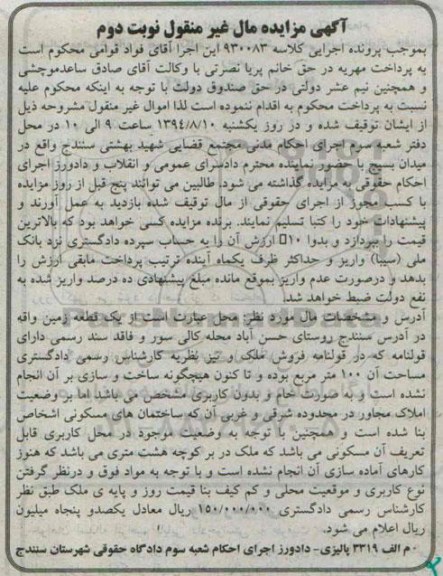 آگهی مزایده مال غیر منقول نوبت دوم
بموجب پرونده اجرایی کلاسه ۹۳۰۰۸۳ این اجرا آقای فواد قوامی محکوم است
به پرداخت مهریه در حق خانم پریا نصرتی با وکالت آقای صادق ساعدموچشی
و همچنین نیم عشر دولتی در حق صندوق دولت با توجه به اینکه محکوم علیه
نسبت به پرداخت محکوم به اقدام ننموده است لذا اموال غیر منقول مشروحه ذیل
از ایشان توقیف شده و در روز یکشنبه ۱۳۹۴/۸/۱۰ ساعت ۹ الی ۱۰ در محل
دفتر شعبه سوم اجرای احکام مدنی مجتمع قضایی شهید بهشتی سنندج واقع در
میدان بسیج با حضور نماینده محترم دادسرای عمومی و انقلاب و دادورز اجرای
احکام حقوقی به مزایده گذاشته می شود. طالبین می توانند پنج قبل از روز مزایده
با کسب مجوز از اجرای حقوقی از مال توقیف شده بازدید به عمل آورند و
پیشنهادات خود را کتبا تسلیم نمایند. برنده مزایده کسی خواهد بود که بالاترین
قیمت را بپردازد و بدوا ۱۰ ارزش آن را به حساب سپرده دادگستری نزد بانک
ملی (سیبا) واریز و حداکثر ظرف یکماه آینده ترتیب پرداخت مابقی ارزش را
بدهد و درصورت عدم واریز بموقع مانده مبلغ پیشنهادی ده درصد واریز شده به
نفع دولت ضبط خواهد شد.
آدرس و مشخصات مال مورد نظر محل عبارت است از یک قطعه زمین واقه
در آدرس سنندج روستای حسن آباد محله کالی سور و فاقد سند رسمی دارای
قولنامه که در قولنامه فروش ملک و نیز نظریه کارشناس رسمی دادگستری
مساحت آن ۱۰۰ متر مربع بوده و تا کنون هیچگونه ساخت و سازی بر آن انجام
نشده است و به صورت خام و بدون کاربری مشخص می باشد اما بر وضعیت
املاک مجاور در محدوده شرقی و غربی آن که ساختمان های مسکونی اشخاص
بنا شده است و همچنین با توجه به وضعیت موجود در محل کاربری قابل
تعریف آن مسکونی می باشد که ملک در بر کوچه هشت متری می باشد که هنوز
کارهای آماده سازی آن انجام نشده است و با توجه به مواد فوق و درنظر گرفتن
نوع کاربری و موقعیت محلی و کم کیف بنا قیمت روز و پایه ی ملک طبق نظر
کارشناس رسمی دادگستری ۱۵۰/۰۰۰/۰۰۰ ریال معادل یکصدو پنجاه میلیون
ریال اعلام می شود.
م الف ۳۳۱۹ پالیزی- دادورز اجرای احکام شعبه سوم دادگاه حقوقی شهرستان سنندج